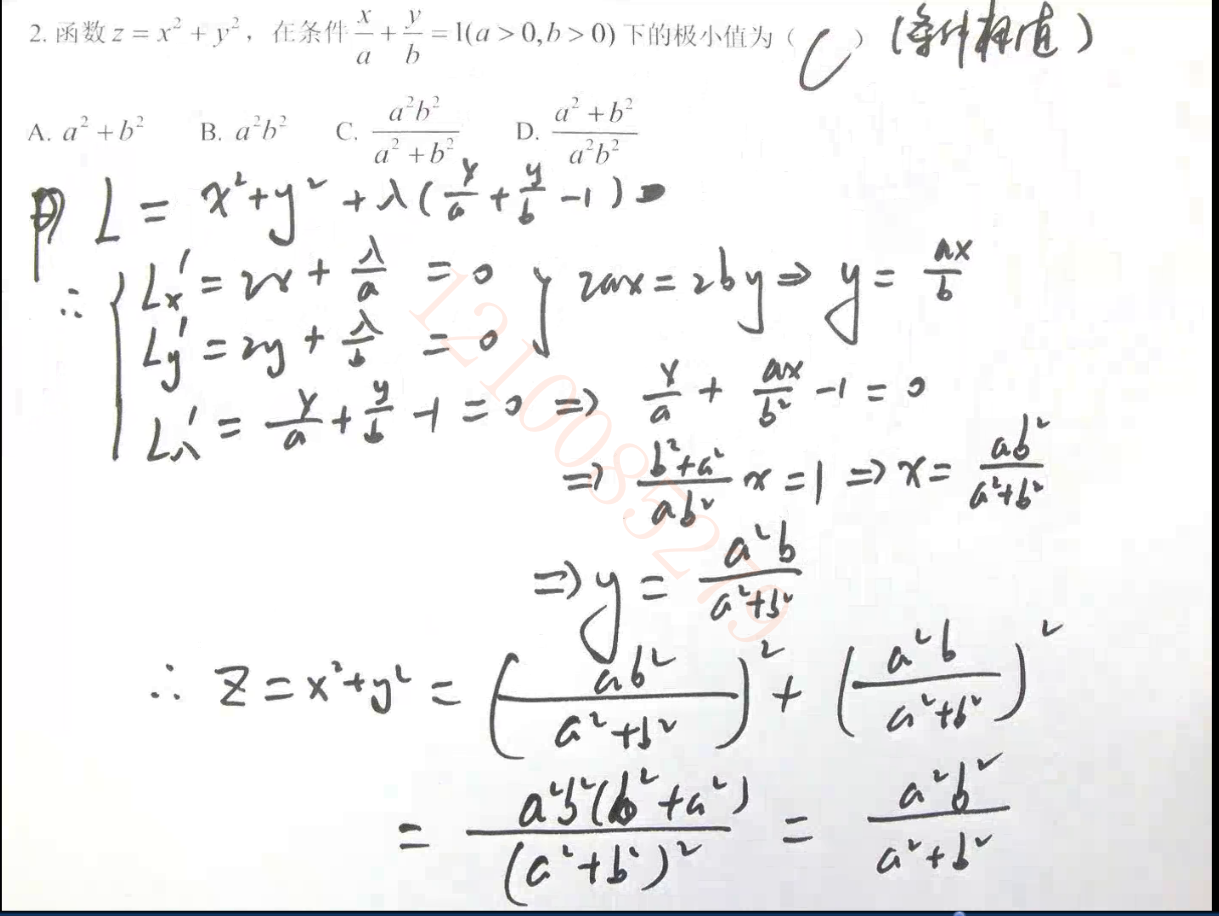 2. 函数 z = x² + y²，在条件 x/a + y/b = 1(a > 0, b > 0) 下的极小值为（ C ） (条件极值)
A. a² + b² B. a²b² C. a²b²/(a² + b²) D. (a² + b²)/(a²b²)
L = x² + y² + λ(x/a + y/b - 1)
∴ { L'x = 2x + λ/a = 0 } 2ax = 2by ⇒ y = ax/b
L'y = 2y + λ/b = 0
L'λ = x/a + y/b - 1 = 0 ⇒ x/a + ax/b² - 1 = 0
⇒ (b² + a²)/(ab²) x = 1 ⇒ x = ab²/(a² + b²)
⇒ y = a²b/(a² + b²)
∴ z = x² + y² = (ab²/(a² + b²))² + (a²b/(a² + b²))²
= a²b²(b² + a²)/(a² + b²)² = a²b²/(a² + b²)
1210085279